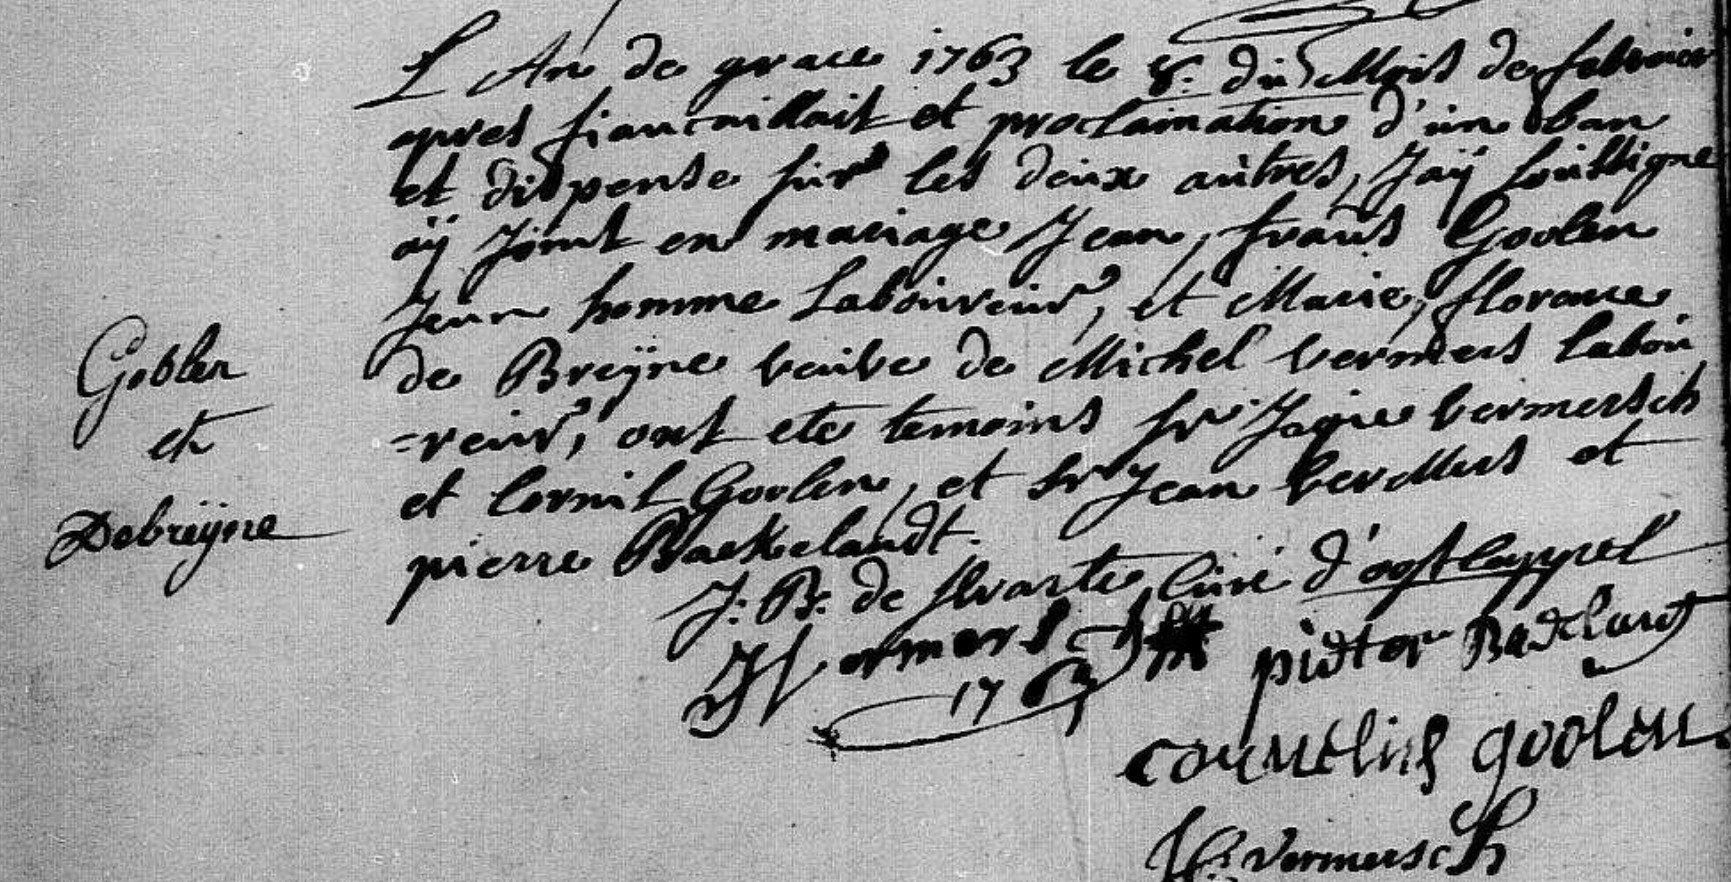 L An de grace 1763 le 8: du Mois de febvrier
apres fiancaillait et proclamation d'un ban
et dispense sur les deux autres, Jaÿ soussigne
aÿ Joint en mariage Jean, frans Goolen
Jeun homme Laboureur, et Marie, florance
de Breÿne veuve de Michel vermers labou
=reur, ont ete temoins sr Jaque vermersch
et Cornil Goolen, et sr Jean verMers et
pierre Baekelandt.
Goblen
et
Debreÿne
J: B: de Swarte Curé d'ostcappel
1763
pieter Baekelandt
cornelius goolen
vermersch